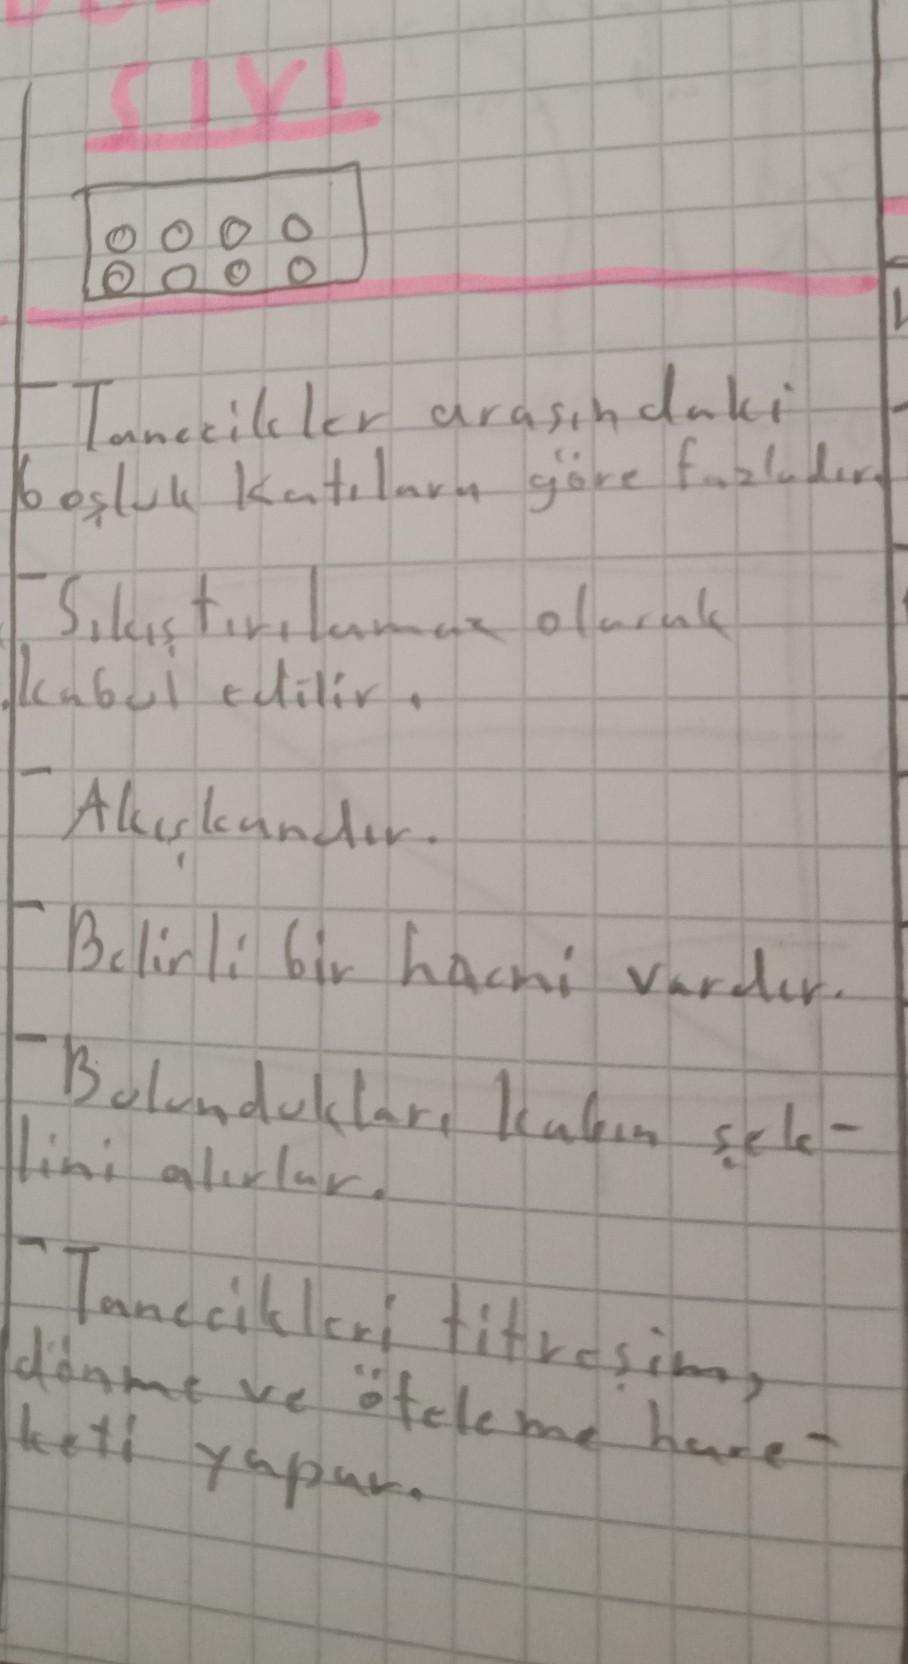 SIVI
- Tanecikler arasındaki
boşluk katılara göre fazladır.
- Sıkıştırılamaz olarak
kabul edilir.
- Akışkandır.
- Belirli bir hacmi vardır.
- Bulundukları kabın şek-
lini alırlar.
- Tanecikleri titreşim,
dönme ve öteleme hare-
keti yapar.